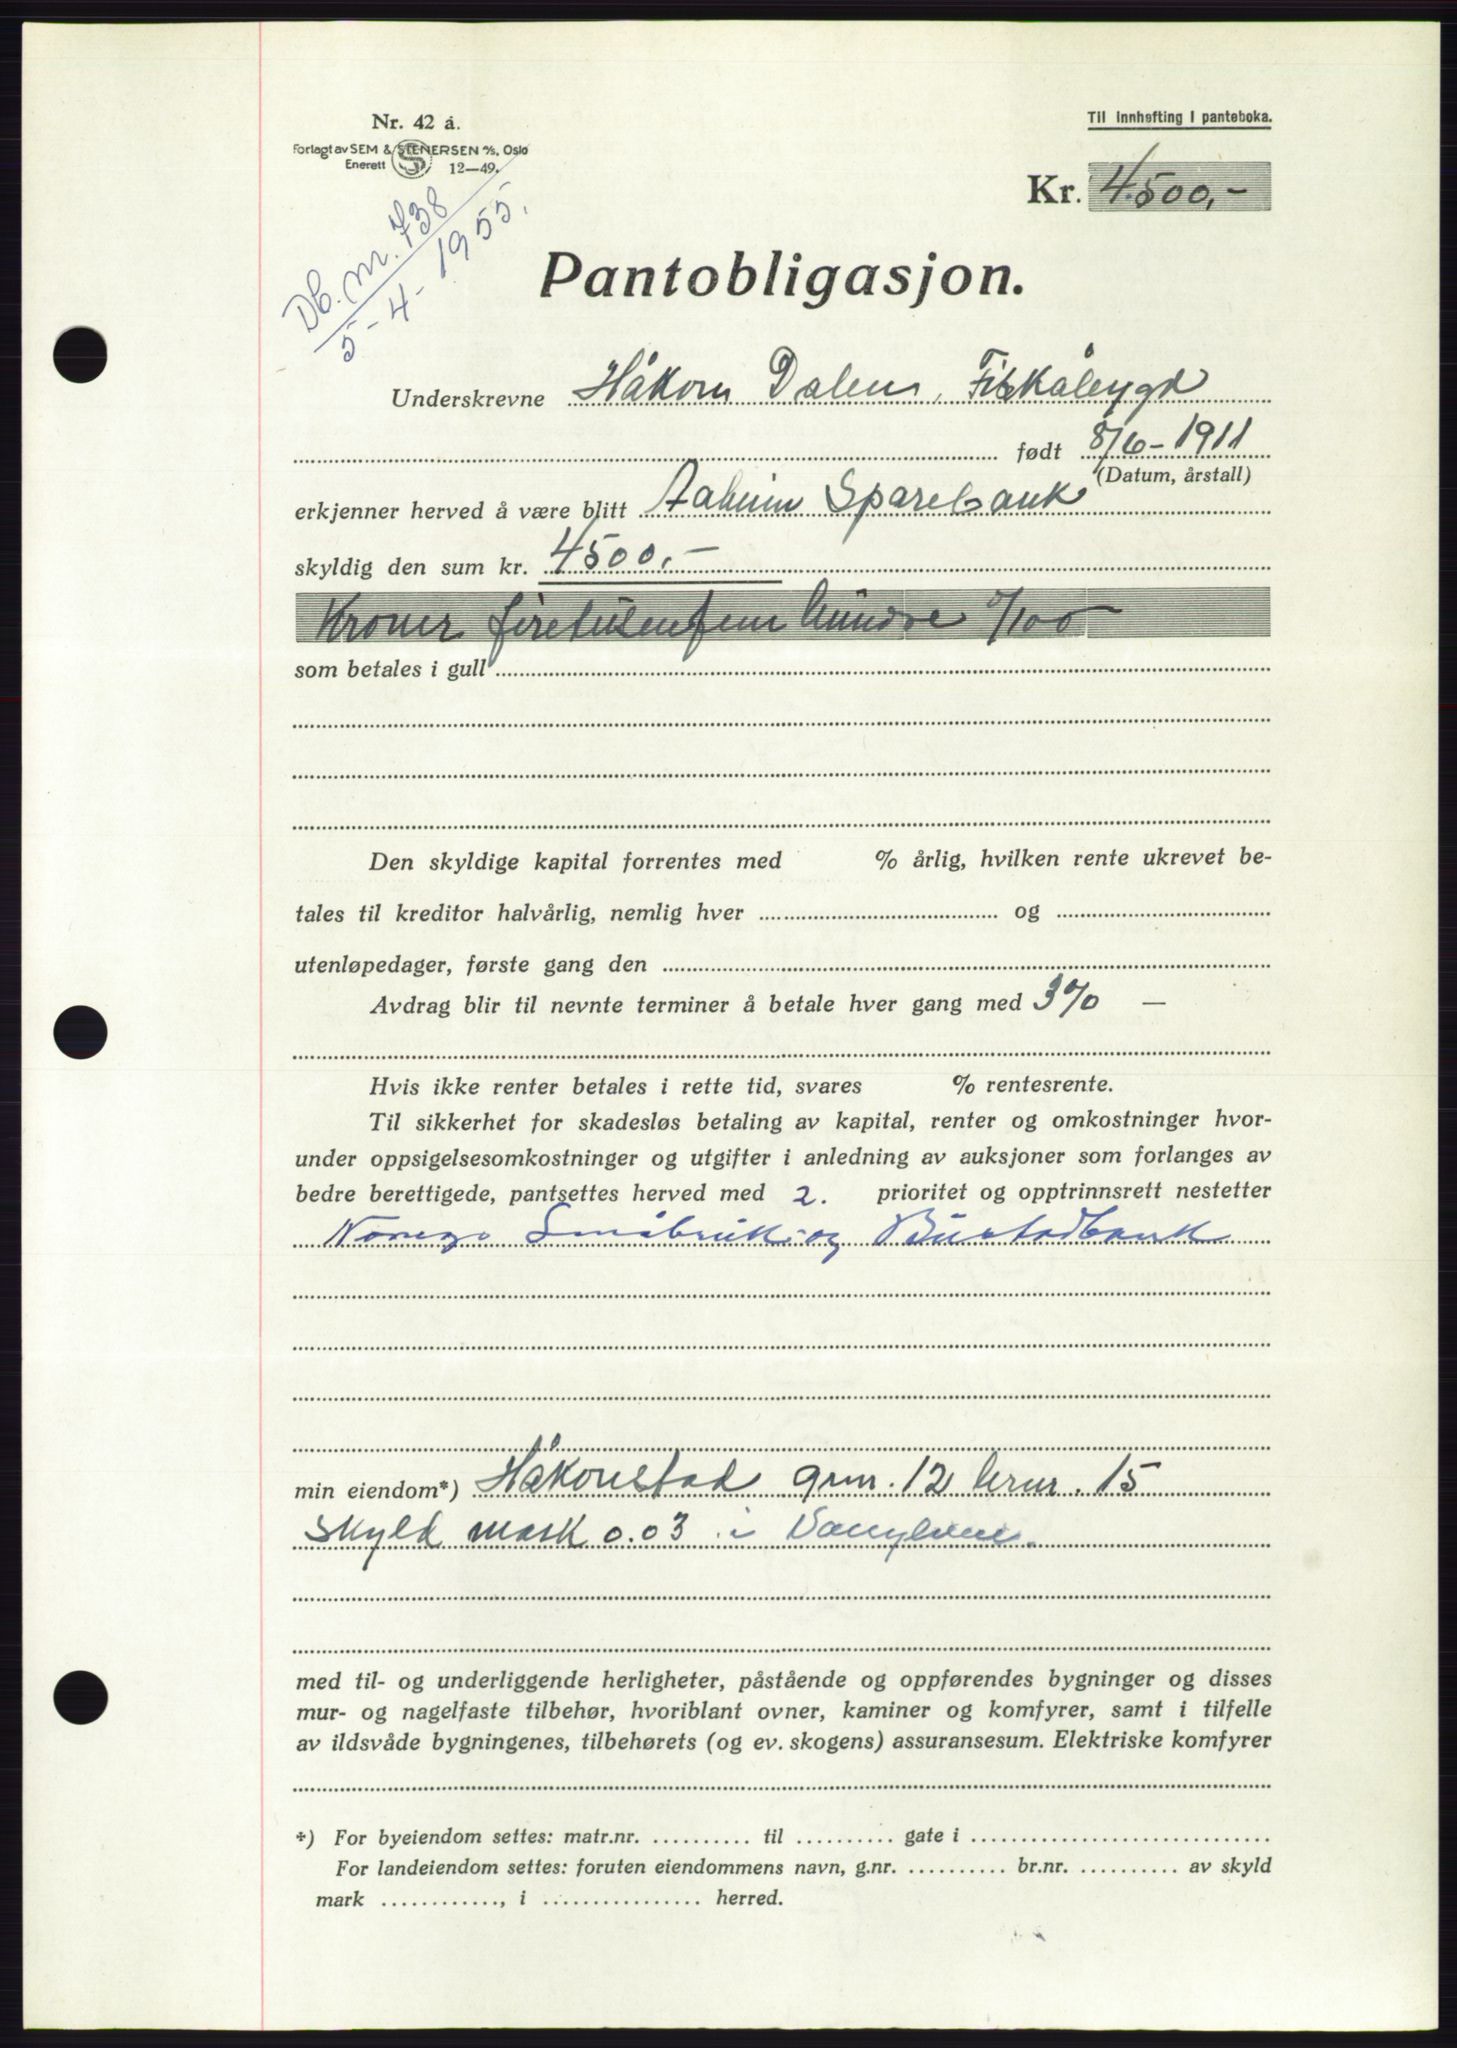 Nr. 42 a.
Forlagt av SEM & STENERSEN A/S, Oslo
Enerett S 12—49.
Til innhefting i panteboka.
Kr. 4.500,-
Db. nr. 738
5-4-1955.
Pantobligasjon.
Underskrevne Håkon Dalen, Fiskåbygd
født 8/6-1911
(Datum, årstall)
erkjenner herved å være blitt Aaheim Sparebank
skyldig den sum kr. 4500.-
Kroner firetusenfem hundre 0/100
som betales i gull
Den skyldige kapital forrentes med % årlig, hvilken rente ukrevet be-
tales til kreditor halvårlig, nemlig hver og
utenløpedager, første gang den
Avdrag blir til nevnte terminer å betale hver gang med 3% —
Hvis ikke renter betales i rette tid, svares % rentesrente.
Til sikkerhet for skadesløs betaling av kapital, renter og omkostninger hvor-
under oppsigelsesomkostninger og utgifter i anledning av auksjoner som forlanges av
bedre berettigede, pantsettes herved med 2. prioritet og opptrinnsrett nestetter
Noregs Småbruk og Bustadbank
min eiendom*) Håkonstad grnr. 12 brnr. 15
Skyld mark 0.03 i Vanylven.
med til- og underliggende herligheter, påstående og oppførendes bygninger og disses
mur- og nagelfaste tilbehør, hvoriblant ovner, kaminer og komfyrer, samt i tilfelle
av ildsvåde bygningenes, tilbehørets (og ev. skogens) assuransesum. Elektriske komfyrer
*) For byeiendom settes: matr.nr. .......... til .......... gate i ..............................
For landeiendom settes: foruten eiendommens navn, g.nr. .......... br.nr. .......... av skyld
mark ............, i ................ herred.